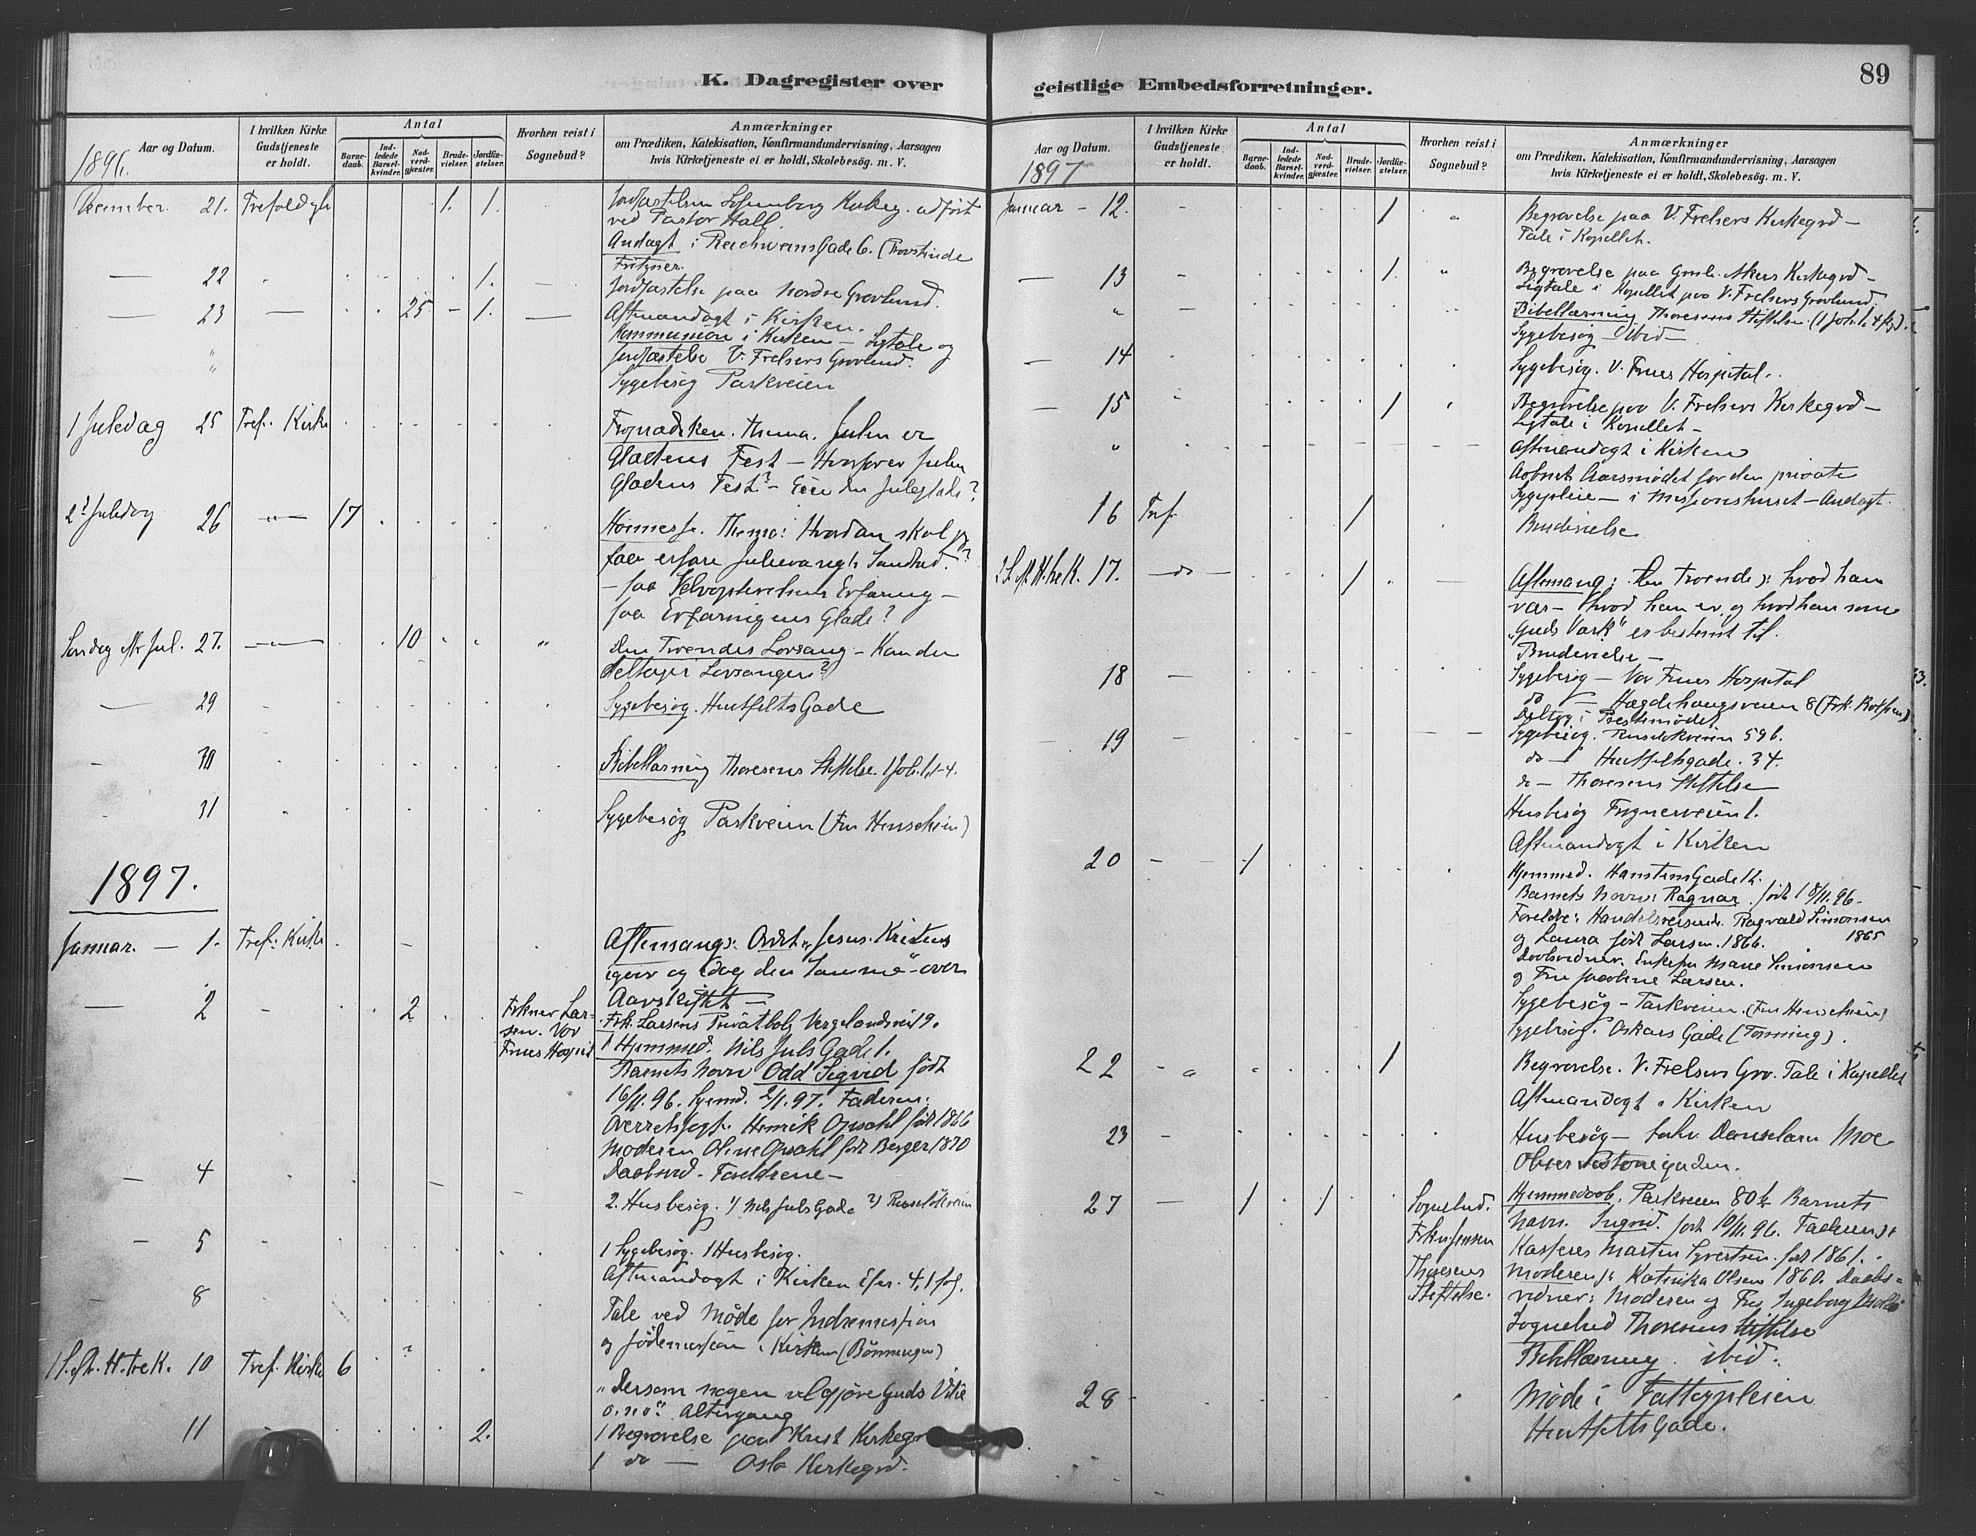 K. Dagregister over
Aar og Datum.
I hvilken Kirke Gudstjeneste er holdt.
Antal
Barne-daab.
Ind-ledede Barsel-kvinder.
Nad-verd-gjæster.
Brude-vielser.
Jordfæ-stelser.
Hvorhen reist i Sognebud?
Anmærkninger
om Prædiken, Katekisation, Konfirmandundervisning, Aarsagen
hvis Kirketjeneste ei er holdt, Skolebesøg. m. V.
1896.
December 21. Trefoldigh 1. 1. Jordfæstelsen Kirkeg. udført
ved Pastor Hall
Andagt i Reichweins Gade 6. (Provstinde
Fritzner.
22 1. Jordfæstelse paa Nordre Gravlund.
23 25 1. Aftenandagt i Kirken.
Kommunion i Kirken – Ligtale og
Jordfæstelse V. Frelsers Gravlund.
Sygebesøg Parkveien
1 Juledag 25 Tref. Kirke Thema. Julen er
Glædens Fest – Hvorfor er Julen
Glædens Fest? – Eier du Juleglæde?
2. Juledag 26 17 Thema: Hvordan skal
faa erfare Sandhed.
– faa Selvoplevelsens Erfaring –
faa Erfaringens Glæde?
Søndag Jul. 27. 10 Den Troendes Lovsang – Kan du
deltage i Lovsangen?
29 Sygebesøg. Huitfelts Gade
30 Bibellæsning Thoresens Stiftelse. 1 Joh. 1,1-4.
31 Sygebesøg Parkveien (Fru Henschien)
1897.
Januar. – 1. Tref. Kirke Aftensang: Ordet „Jesus Kristus
igaar og idag den Samme“ over
Aarsskiftet –
2 2 Frkner Lar-
sen. Vor
Frues Hospit
Frk. Larsens Privatbolig Vergelandsvei 9.
1 Hjemmed. Nils Juls Gade 1.
Barnets Navn Odd Sigvid født
16/11. 96. Hjemd. 2/1. 97. Faderen:
Overretssagf. Henrik Opsahl født 1866
Moderen Oline Opsahl født Berger 1870
Daabsvid. Forældrene –
4 2. Husbesøg. 1) Nils Juls Gade 2) Ruseløkveien
5 1 Sygebesøg. 1 Husbesøg.
Aftenandagt i Kirken Efes. 4, 1 føl.
8 Tale ved Møde for Indremission
og Jødemission i Kirken (Bønneugen)
1 S. eft. H. tre K. 10 Tref. Kirke 6 „Dersom nogen vil gjøre Guds Vilie
o.n.o“. Altergang
11 2. 1 Begravelse paa Krist Kirkegr
1 do – Oslo Kirkegrd.
geistlige Embedsforretninger.
89
Aar og Datum.
I hvilken Kirke Gudstjeneste er holdt.
Antal
Barne-daab.
Ind-ledede Barsel-kvinder.
Nad-verd-gjæster.
Brude-vielser.
Jordfæ-stelser.
Hvorhen reist i Sognebud?
Anmærkninger
om Prædiken, Katekisation, Konfirmandundervisning, Aarsagen
hvis Kirketjeneste ei er holdt, Skolebesøg. m. V.
1897
Januar – 12. 1 Begravelse paa V. Frelsers Kirkegrd –
Tale i Kapellet.
13 1. Begravelse paa Gml. Akers Kirkegrd –
Ligtale i Kapellet paa V. Frelsers Gravlund.
Bibellæsning Thoresens Stiftelse (1 Joh. 1. 4 flg).
Sygebesøg – ibid –
14 Sygebesøg. V. Frues Hospital.
15 1 Begravelse paa V. Frelsers Kirkegrd –
Ligtale i Kapellet –
Aftenandagt i Kirken
Aabnet Aarsmødet for den private
Sygepleie – i Missionshuset – Andagt.
16 Tref. 1 Brudevielse
2 S. eft. H. tre K. 17. – do – 1 Aftensang: Den Troende: hvad han
var – hvad han er, og hvad han som
„Guds Værk“ er bestemt til.
Brudevielse –
18 Sygebesøg – Vor Frues Hospital
do – Hægdehaugsveien 8 (Frk.
Deltog i Præstemødet
19 Sygebesøg. Ruseløkveien 59 b.
do – Huitfeltsgade. 34.
do – Thoresens Stiftelse
Husbesøg Frognerveien 1.
Aftenandagt i Kirken
20 1 Hjemmed. Hansteens Gade 12.
Barnets Navn: Ragnar. født 18/11. 96.
Forældre: Handelsreisende Ragvald Simonsen
1865
og Laura født Larsen. 1866.
Daabsvidner. Enkefru Marie Simonsen
og Fru Jacobine Larsen.
Sygebesøg – Parkveien. (Fru Henschien)
Sygebesøg. Oskars Gade (Tønning).
22 1 Begravelse. V. Frelsers Grv. Tale i Kapellet
Aftenandagt i Kirken
23 Husbesøg – Moe
Observatoriegaden.
27 1 1 Sognebud.
Frkn Jensen
Thoresens
Stiftelse.
Hjemmedaab. Parkveien 80 b. Barnets
Navn. Ingrid. født 10/11. 96. Faderen:
Martin Syvertsen. født 1861.
Moderen: Katinka Olsen 1860. Daabs-
vidner: Moderen og Fru Ingeborg
Sognebud Thoresens Stiftelse
Bibellæsning. ibid.
28 Møde i Fattigpleien
Huitfelts Gade.